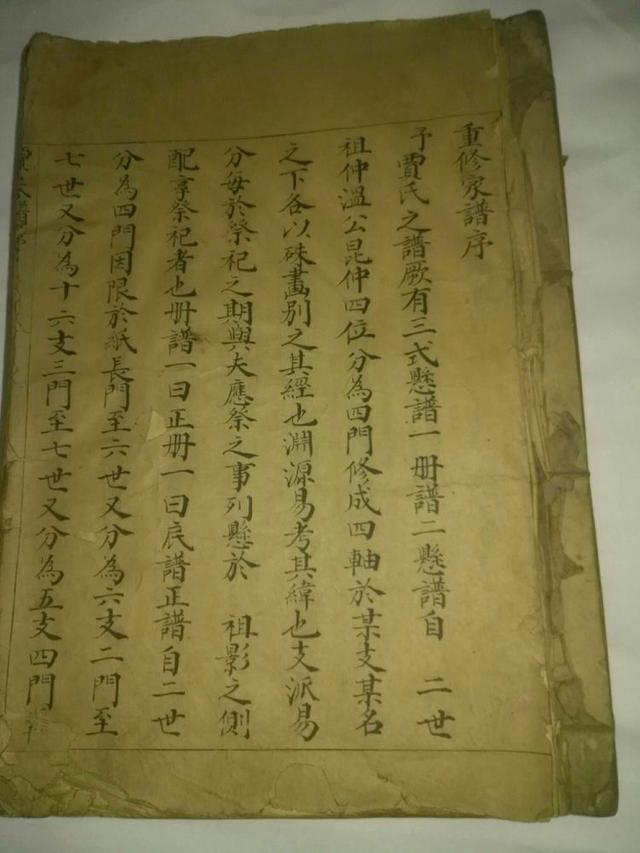 重修家譜序
予賈氏之譜厥有三式懸譜一册譜二懸譜自 二世
祖仲溫公昆仲四位分為四門修成四軸於某支某名
之下各以硃畫別之其經也淵源易考其緯也支派易
分每於祭祀之期與夫應祭之事列懸於 祖影之側
配享祭祀者也册譜一曰正册一曰底譜正譜自二世
分為四門因限於紙長門至六世又分為六支二門至
七世又分為十六支三門至七世又分為五支四門